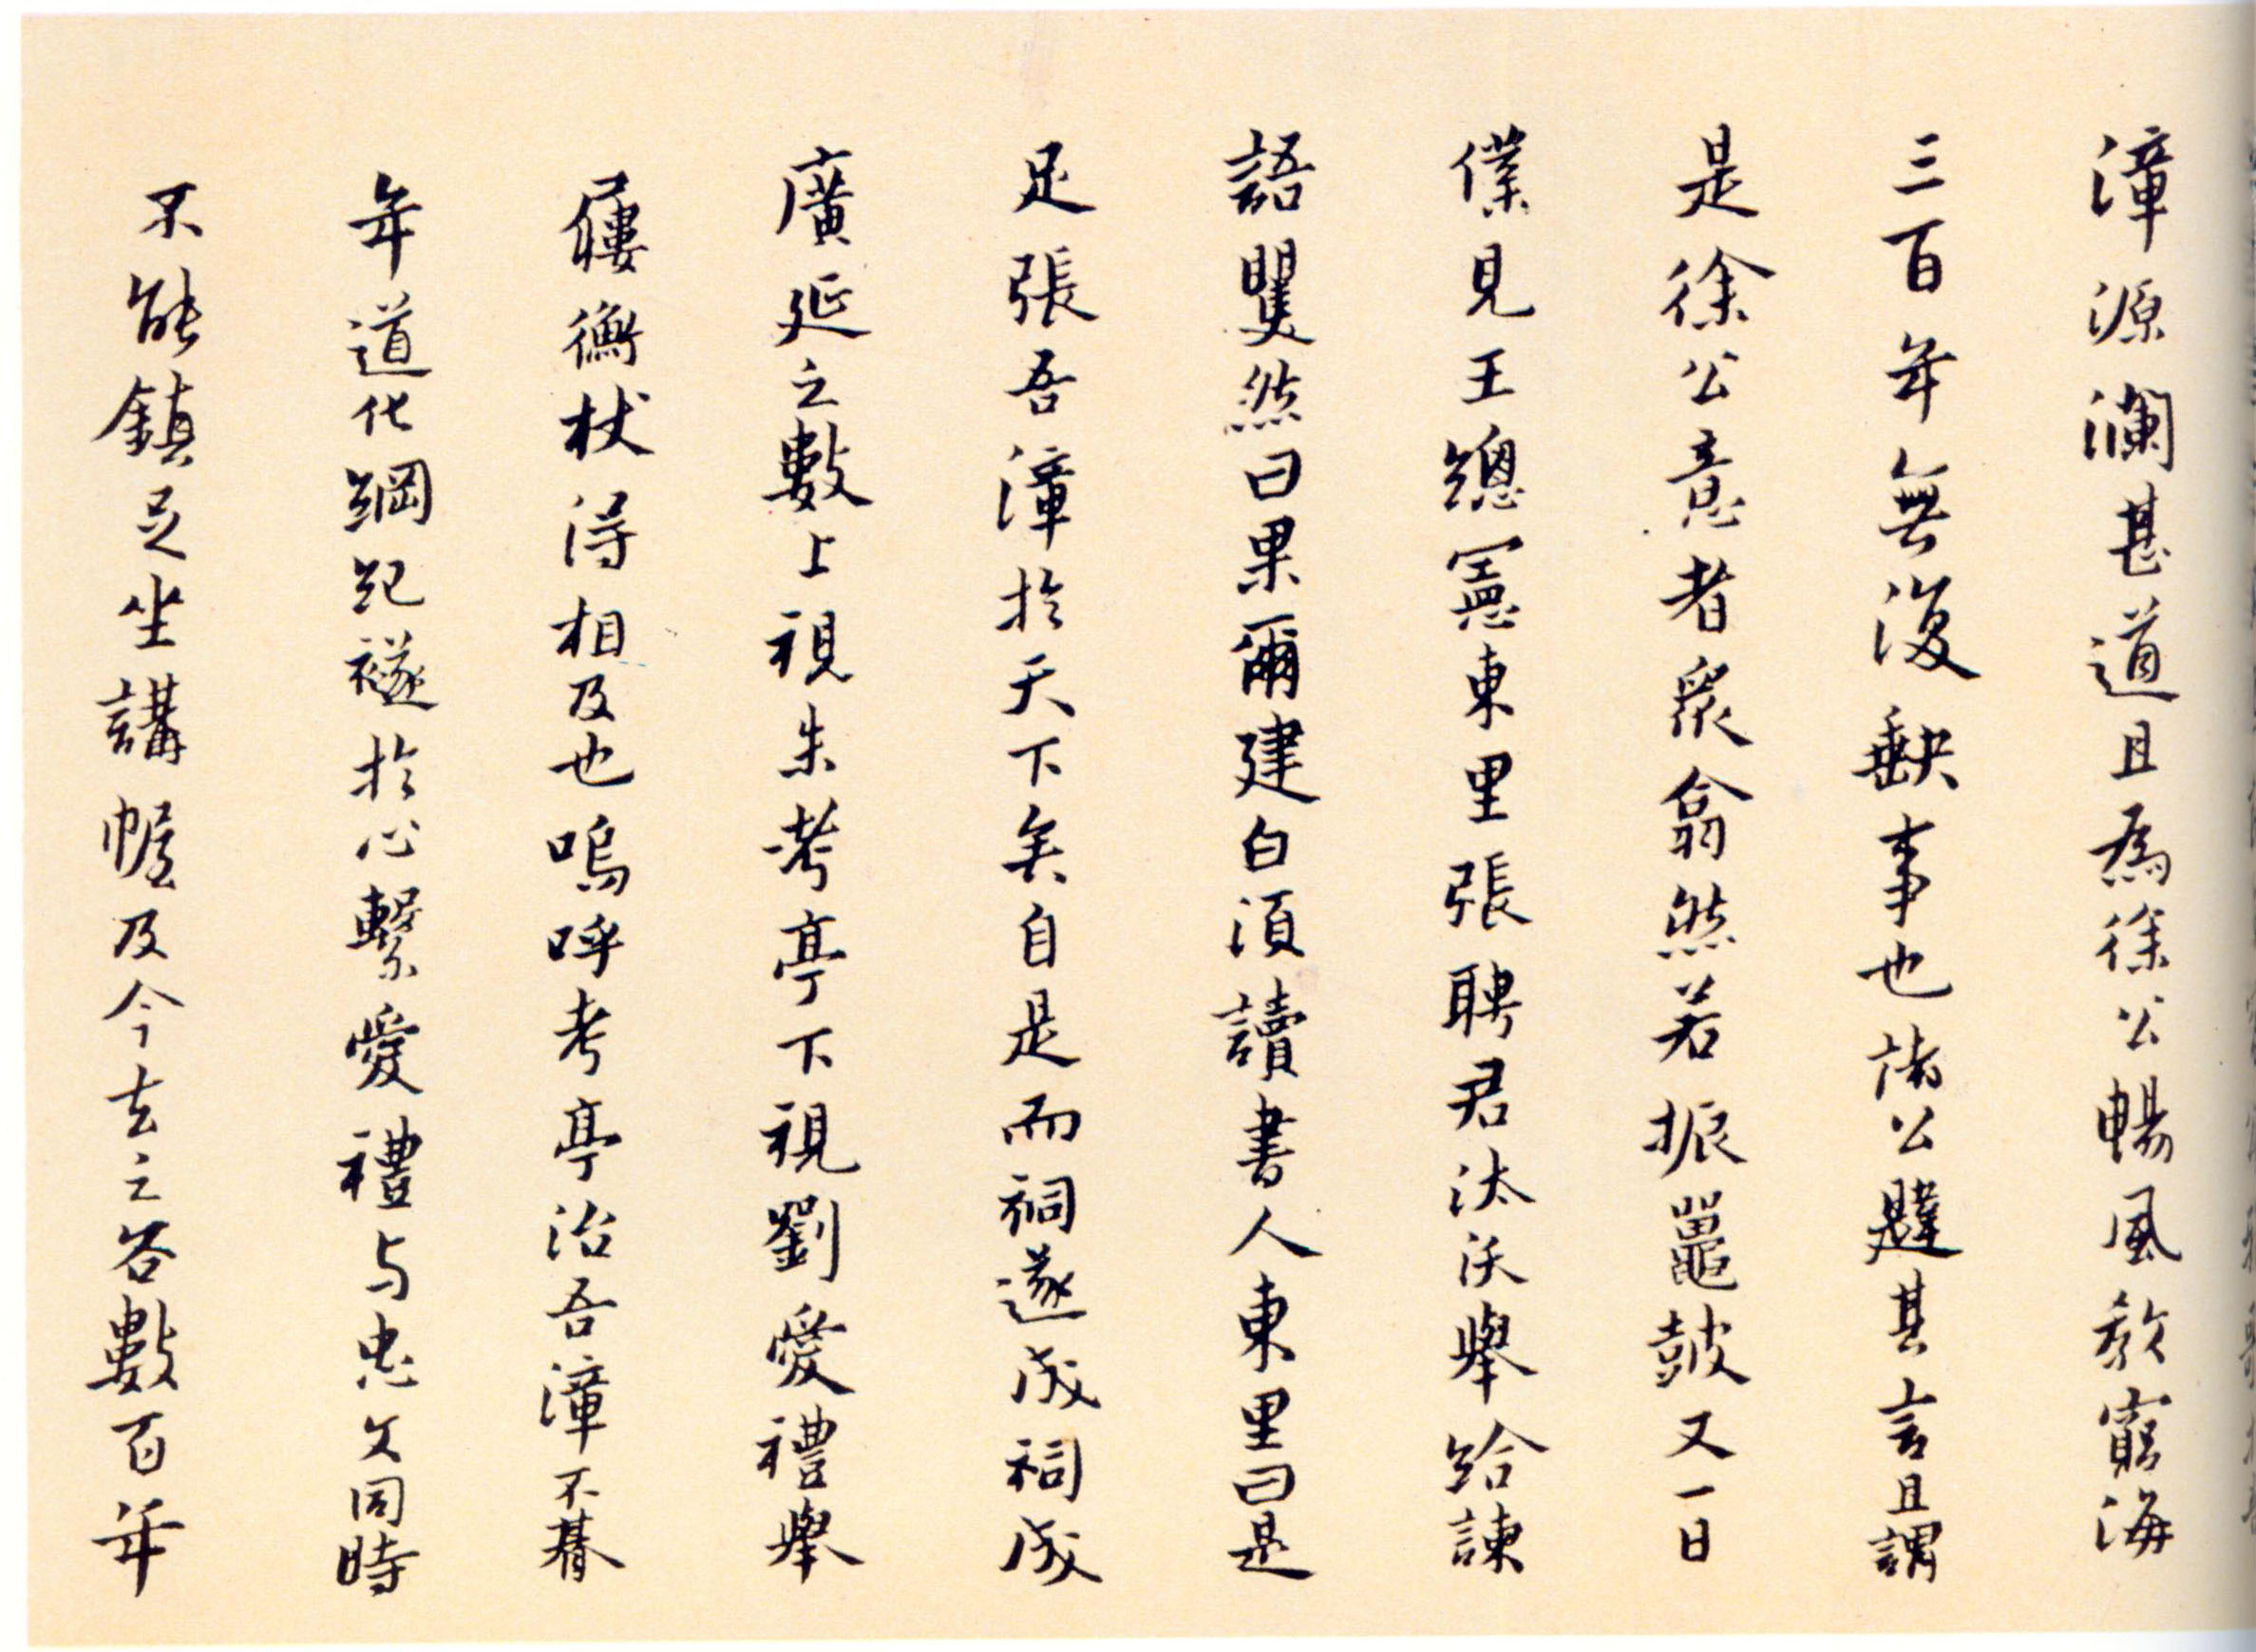 漳源瀾甚道且為徐公暢風教窮海
三百年無復缺事也諸公韙其言且謂
是徐公意者眾翕然若振鼉鼓又一日
僕見王總憲東里張聘君汰沃舉給諫
語瞿然曰果爾建白須讀書人東里曰是
足張吾漳於天下矣自是而祠遂成祠成
廣延之數上視朱考亭下視劉愛禮舉
屨衡杖得相及也嗚呼考亭治吾漳不朞
年道化綱紀襚於心繫愛禮与忠文同時
不能鎮足坐講幄及今去之各數百年